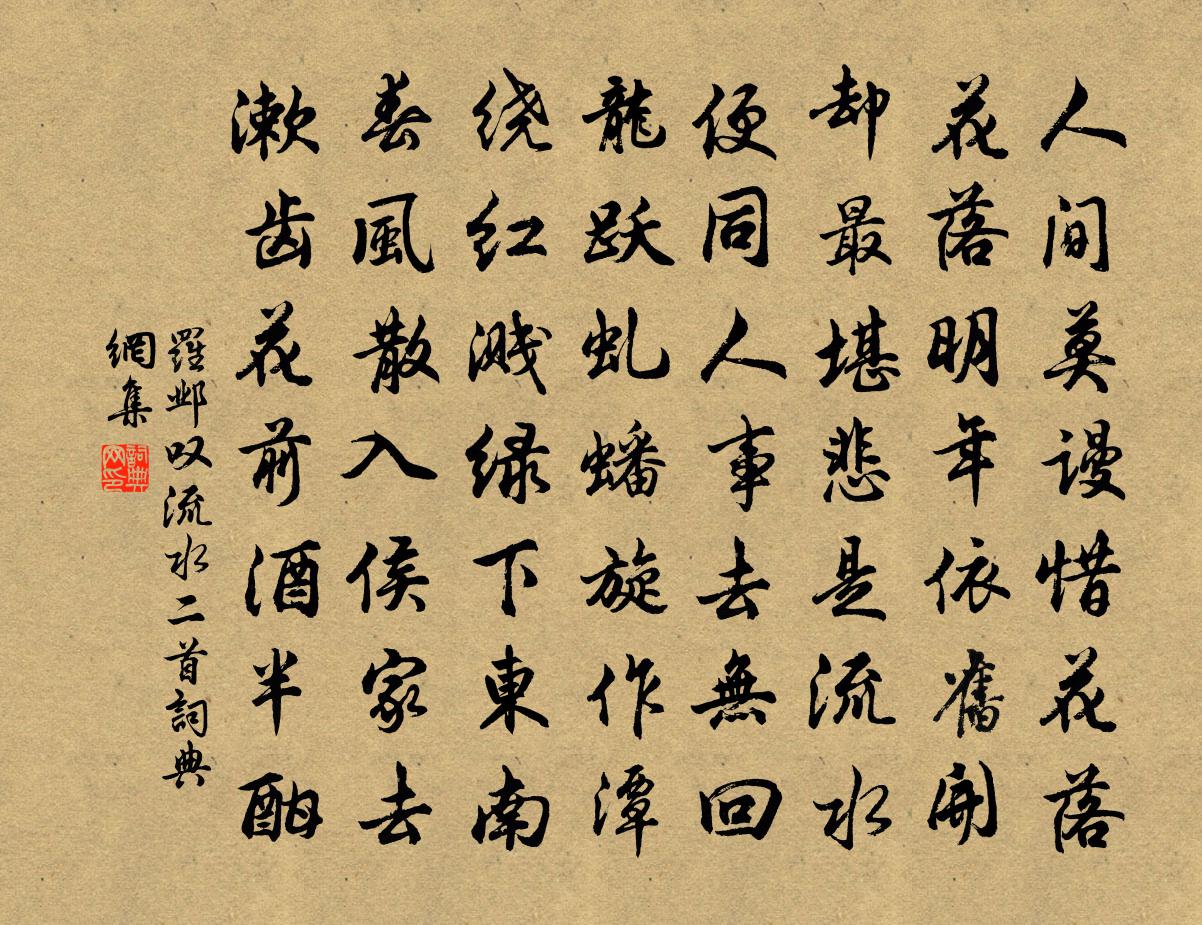 人间莫谩惜花落
花落明年依舊開
却最堪悲是流水
便同人事去無回
龍跃虬蟠旋作潭
绕红溅绿下東南
春風散入侯家去
漱齿花前酒半酣
羅邺叹流水二首詞典
網集
詞典
网印